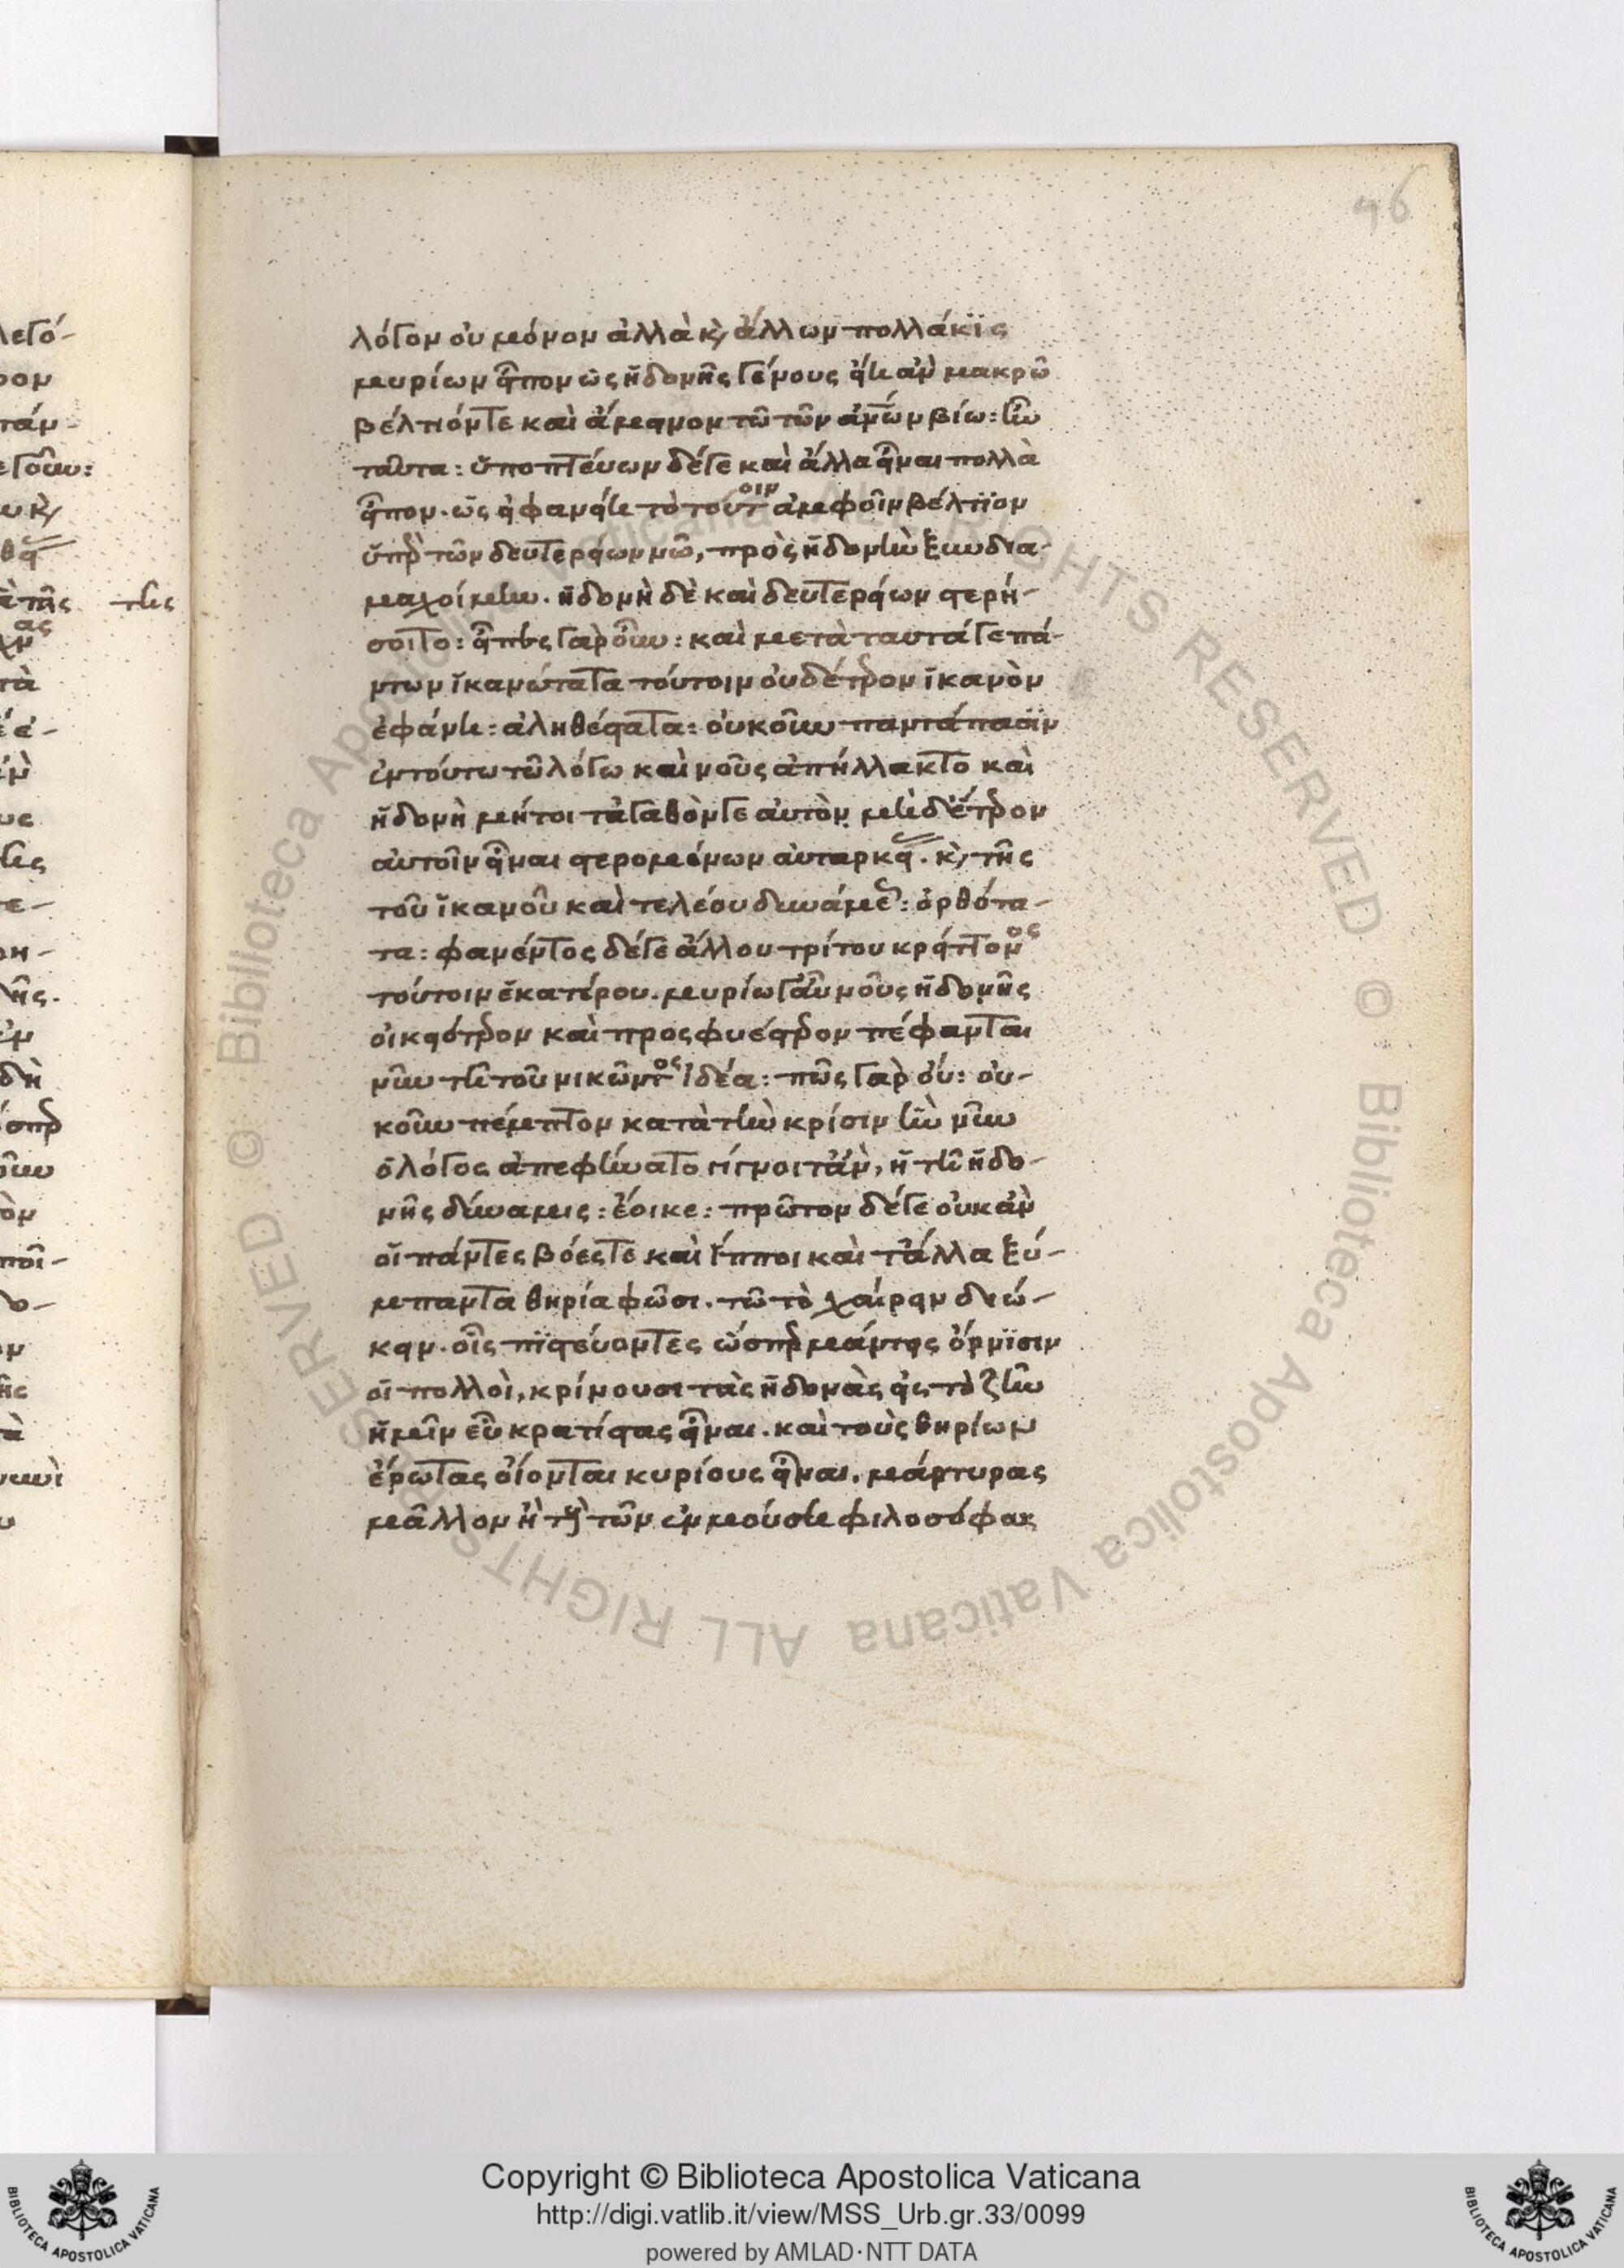 46
λόγον οὐ μόνον ἀλλὰ κ ἄλλων πολλάκϊς
μυρίων εἶπον ὡς ἡδονῆς γένους εἴη ἂν μακρῶ
βέλτιόν τε καὶ ἄμεινον τῶ τῶν ἀνων βίω: ἦν
ταῦτα: ὑποπτεύων δέ γε καὶ ἄλλα εἶναι πολλὰ
εἶπον. ὡς εἰ φανείη τὸ τούτοιν ἀμφοῖν βέλτϊον
ὑπὲρ τῶν δευτερείων νῶ, πρὸς ἡδονὴν ξυνδια-
μαχοίμην. ἡδονὴ δὲ καὶ δευτερείων στερή-
σοιτο: εἶπες γὰρ οὖν: καὶ μετὰ ταυτά γε πά-
ντων ἱκανώτατα τούτοιν οὐδέτερον ἱκανὸν
ἐφάνη: ἀληθέστατα: οὐκοῦν παντάπασϊν
ἐν τούτω τῶ λόγω καὶ νοῦς ἀπήλλακτο καὶ
ἡδονὴ μήτοι τἀγαθόν γε αὐτὸν μὴδέτερον
αὐτοῖν εἶναι στερομένων αὐταρκείας. κ τῆς
τοῦ ἱκανοῦ καὶ τελέου δυνάμεως: ὀρθότα-
τα: φανέντος δέ γε ἄλλου τρίτου κρείττονος
τούτοιν ἑκατέρου. μυρίω γ' αὖ νοῦς ἡδονῆς
οἰκειότερον καὶ προσφυέστερον πέφανται
νῦν τῆ τοῦ νικῶντος ἰδέα: πῶς γὰρ οὔ: οὐ-
κοῦν πέμπτον κατὰ τὴν κρίσιν ἣν νῦν
ὁ λόγος ἀπεφήνατο γίγνοιτ' ἂν, ἡ τῆ ἡδο-
νῆς δύναμις: ἔοικε: πρῶτον δέ γε οὐκ ἂν
οἱ πάντες βόες τε καὶ ἵπποι καὶ τἄλλα ξύ-
μπαντα θηρία φῶσι. τῶ τὸ χαίρειν διώ-
κειν. οἷς πϊστεύοντες ὥσπερ μάντεις ὄρνϊσιν
οἱ πολλοὶ, κρίνουσι τὰς ἡδονὰς εἰς τὸ ζῆν
ἡμῖν εὖ κρατίστας εἶναι. καὶ τοὺς θηρίων
ἔρωτας οἴονται κυρίους εἶναι. μάρτυρας
μᾶλλον ἢ τοὺς τῶν ἐν μούση φιλοσόφω
Copyright © Biblioteca Apostolica Vaticana
http://digi.vatlib.it/view/MSS_Urb.gr.33/0099
powered by AMLAD·NTT DATA
BIBLIOTECA APOSTOLICA VATICANA
BIBLIOTECA APOSTOLICA VATICANA
© Biblioteca Apostolica Vaticana ALL RIGHTS RESERVED © Biblioteca Apostolica Vaticana ALL RIGHTS RESERVED